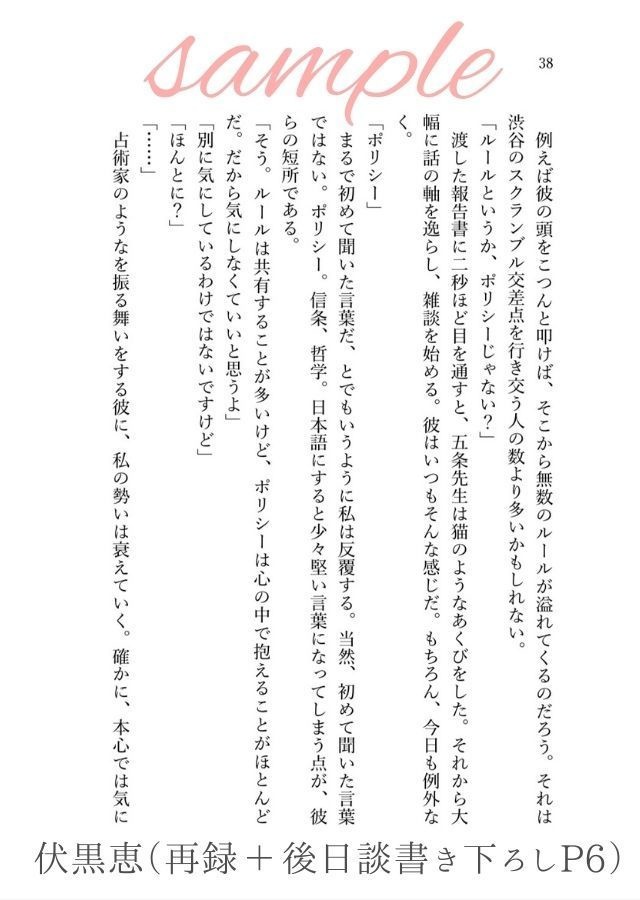 sample
38
例えば彼の頭をこつんと叩けば、そこから無数のルールが溢れてくるのだろう。それは
渋谷のスクランブル交差点を行き交う人の数より多いかもしれない。
「ルールというか、ポリシーじゃない？」
渡した報告書に二秒ほど目を通すと、五条先生は猫のようなあくびをした。それから大
幅に話の軸を逸らし、雑談を始める。彼はいつもそんな感じだ。もちろん、今日も例外な
く。
「ポリシー」
まるで初めて聞いた言葉だ、とでもいうように私は反覆する。当然、初めて聞いた言葉
ではない。ポリシー。信条、哲学。日本語にすると少々堅い言葉になってしまう点が、彼
らの短所である。
「そう。ルールは共有することが多いけど、ポリシーは心の中で抱えることがほとんど
だ。だから気にしなくていいと思うよ」
「別に気にしているわけではないですけど」
「ほんとに？」
「……」
占術家のようなを振る舞いをする彼に、私の勢いは衰えていく。確かに、本心では気に
伏黒恵（再録＋後日談書き下ろしP6）